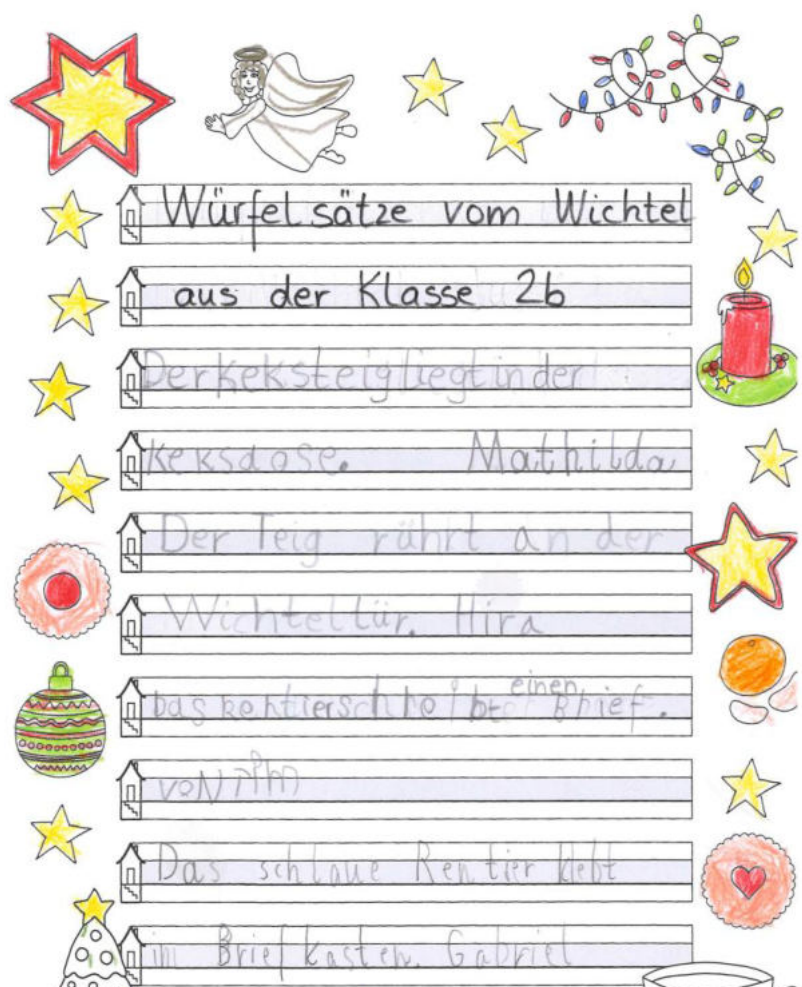 Würfelsätze vom Wichtel
aus der Klasse 2b
Derkeksteigliegtinder
Keksdose. Mathilda
Der Teig rührt an der
Wichteltür. Hira
einen
Das Rentierschreibt Brief.
voN
Das schlaue Rentier klebt
im Briefkasten. Gabriel